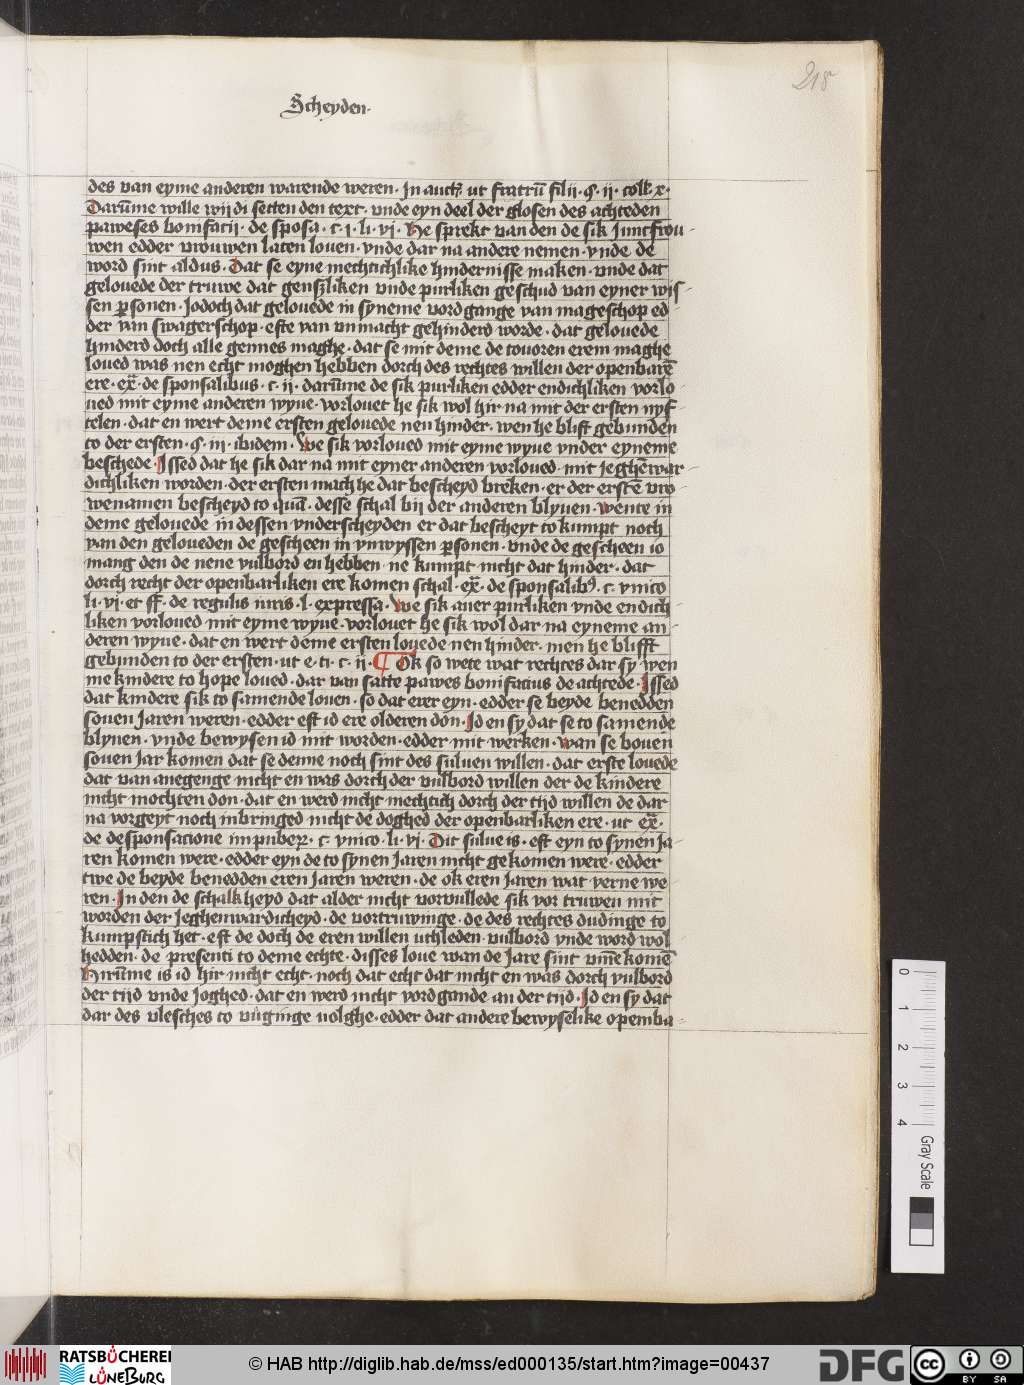 218
Scheyden·
des van eyme anderen warende weren· In auctꝫ ut fratrū filii·§·ij·coll·x·
Darūme wille wij di setten den text· vnde eyn deel der glosen des achteden
paweses bonifacii· de sposa·c·j·li·vj· He sprekt van den de sik Junctfrou
wen edder vrouwen laten louen· vnde dar na andere nemen· vnde de
word sint aldus· Dat se eyne mechtichlike hindernisse maken· vnde dat
gelouede der truwe dat genszliken vnde purliken geschud van eyner wis
sen ꝑsonen· Jodoch dat gelouede in syneme vordgange van mageschop ed
der van swagerschop· efte van vnmacht gehinderd worde· dat gelouede
hinderd doch alle gennes maghe· dat se mit deme de touoren erem maghe
loued was nen echt moghen hebben dorch des rechtes willen der openbarē
ere· ex̄· de sponsalibus·c·ij· darūme de sik purliken edder endichliken vorlo
ued mit eyme anderen wyue· vorlouet he sik wol hir na mit der ersten nyf
telen· dat en wert deme ersten gelouede nen hinder· wen he blift gebunden
to der ersten·§·iij·ibidem· We sik vorloued mit eyme wyue vnder eyneme
beschede· Issed dat he sik dar na mit eyner anderen vorloued· mit jeghēwar
dichliken worden· der ersten mach he dat bescheyd breken· er der erstē vro
wenamen bescheyd to quā· desse schal bij der anderen blyuen· wente in
deme gelouede in dessen vnderscheyden er dat bescheyt to kumpt noch
van den geloueden de gescheen in vnwyssen ꝑsonen· vnde de gescheen io
mang den de nene vulbord en hebben· ne kumpt nicht dat hinder· dat
dorch recht der openbarliken ere komen schal· ex̄· de sponsalibꝰ·c·vnico
li·vi·et ff· de regulis iuris·l·expressa· We sik auer purliken vnde endich
liken vorloued mit eyme wyue· vorlouet he sik wol dar na eyneme an
deren wyue· dat en wert deme ersten louede nen hinder· men he blifft
gebunden to der ersten· ut e·ti·c·ii· ¶ Ok so wete wat rechtes dar sy wen
me kindere to hope loued· dar van satte pawes bonifacius de achtede· Issed
dat kindere sik to samende louen· so dat erer eyn· edder se beyde benedden
souen Jaren weren· edder eft id ere olderen don· Id en sy dat se to samende
blyuen· vnde bewysen id mit worden· edder mit werken· wan se bouen
souen Jar komen dat se denne noch sint des suluen willen· dat erste louede
dat van anegenge nicht en was dorch der vulbord willen der de kindere
nicht mochten don· dat en werd nicht mechtich dorch der tijd willen de dar
na vorgeyt noch inbringed nicht de doghed der openbarliken ere· ut ex̄·
de desponsacione impubeꝝ·c·vnico·li·vj· Dit sulue is· eft eyn to synen Ja
ren komen were· edder eyn de to synen Jaren nicht gekomen were· edder
twe de beyde benedden eren Jaren weren· de ok eren Jaren wat verne we
ren· In den de schalkheyd dat alder nicht vorvullede sik vor truwen mit
worden der Jeghenwardicheyd· de vortruwinge· de des rechtes dudinge to
kumpstich het· eft de doch de eren willen uthleden· vulbord vnde word wol
hedden· de presenti to deme echte· disses loue wan de Jare sint vm̄e komē
Hirūme is id hir nicht echt· noch dat echt dat nicht en was dorch vulbord
der tijd vnde Joghed· dat en werd nicht vordgande an der tijd· Id en sy dat
dar des vlesches to vůginge volghe· edder dat andere bewyselike openba
0 1 2 3 4
Gray Scale
RATSBÜCHEREI
LÜNEBURG
© HAB http://diglib.hab.de/mss/ed000135/start.htm?image=00437
DFG
cc
BY SA